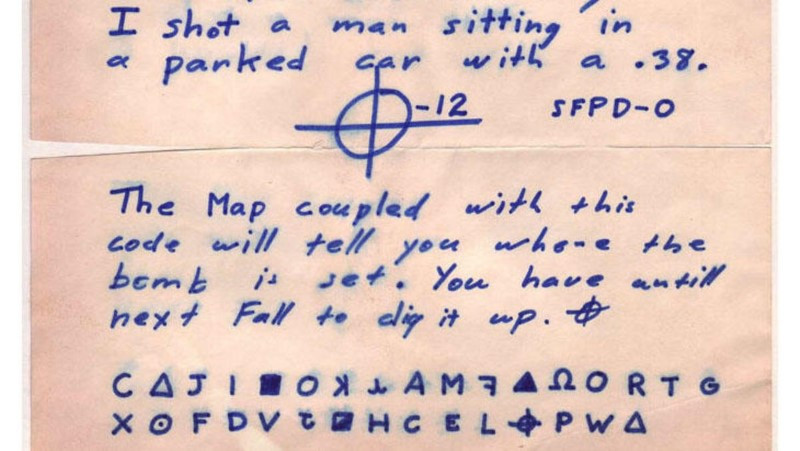 I shot a man sitting in
a parked car with a .38.
⌖-12 SFPD-0
The Map coupled with this
code will tell you whone the
bomb is set. You have antill
next Fall to dig it up. ⌖
C Δ J I ■ O ꓘ ⅄ A M ꟻ ▲ Ω O R T G
X ⊙ F D V ꓶ ◪ H C E L ⌖ P W Δ